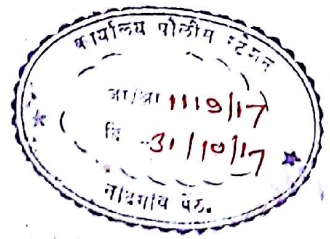 कार्यालय पोलीस स्टेशन
जा/क्रा 1119/17
दि 31/10/17
नांदगांव पेठ.